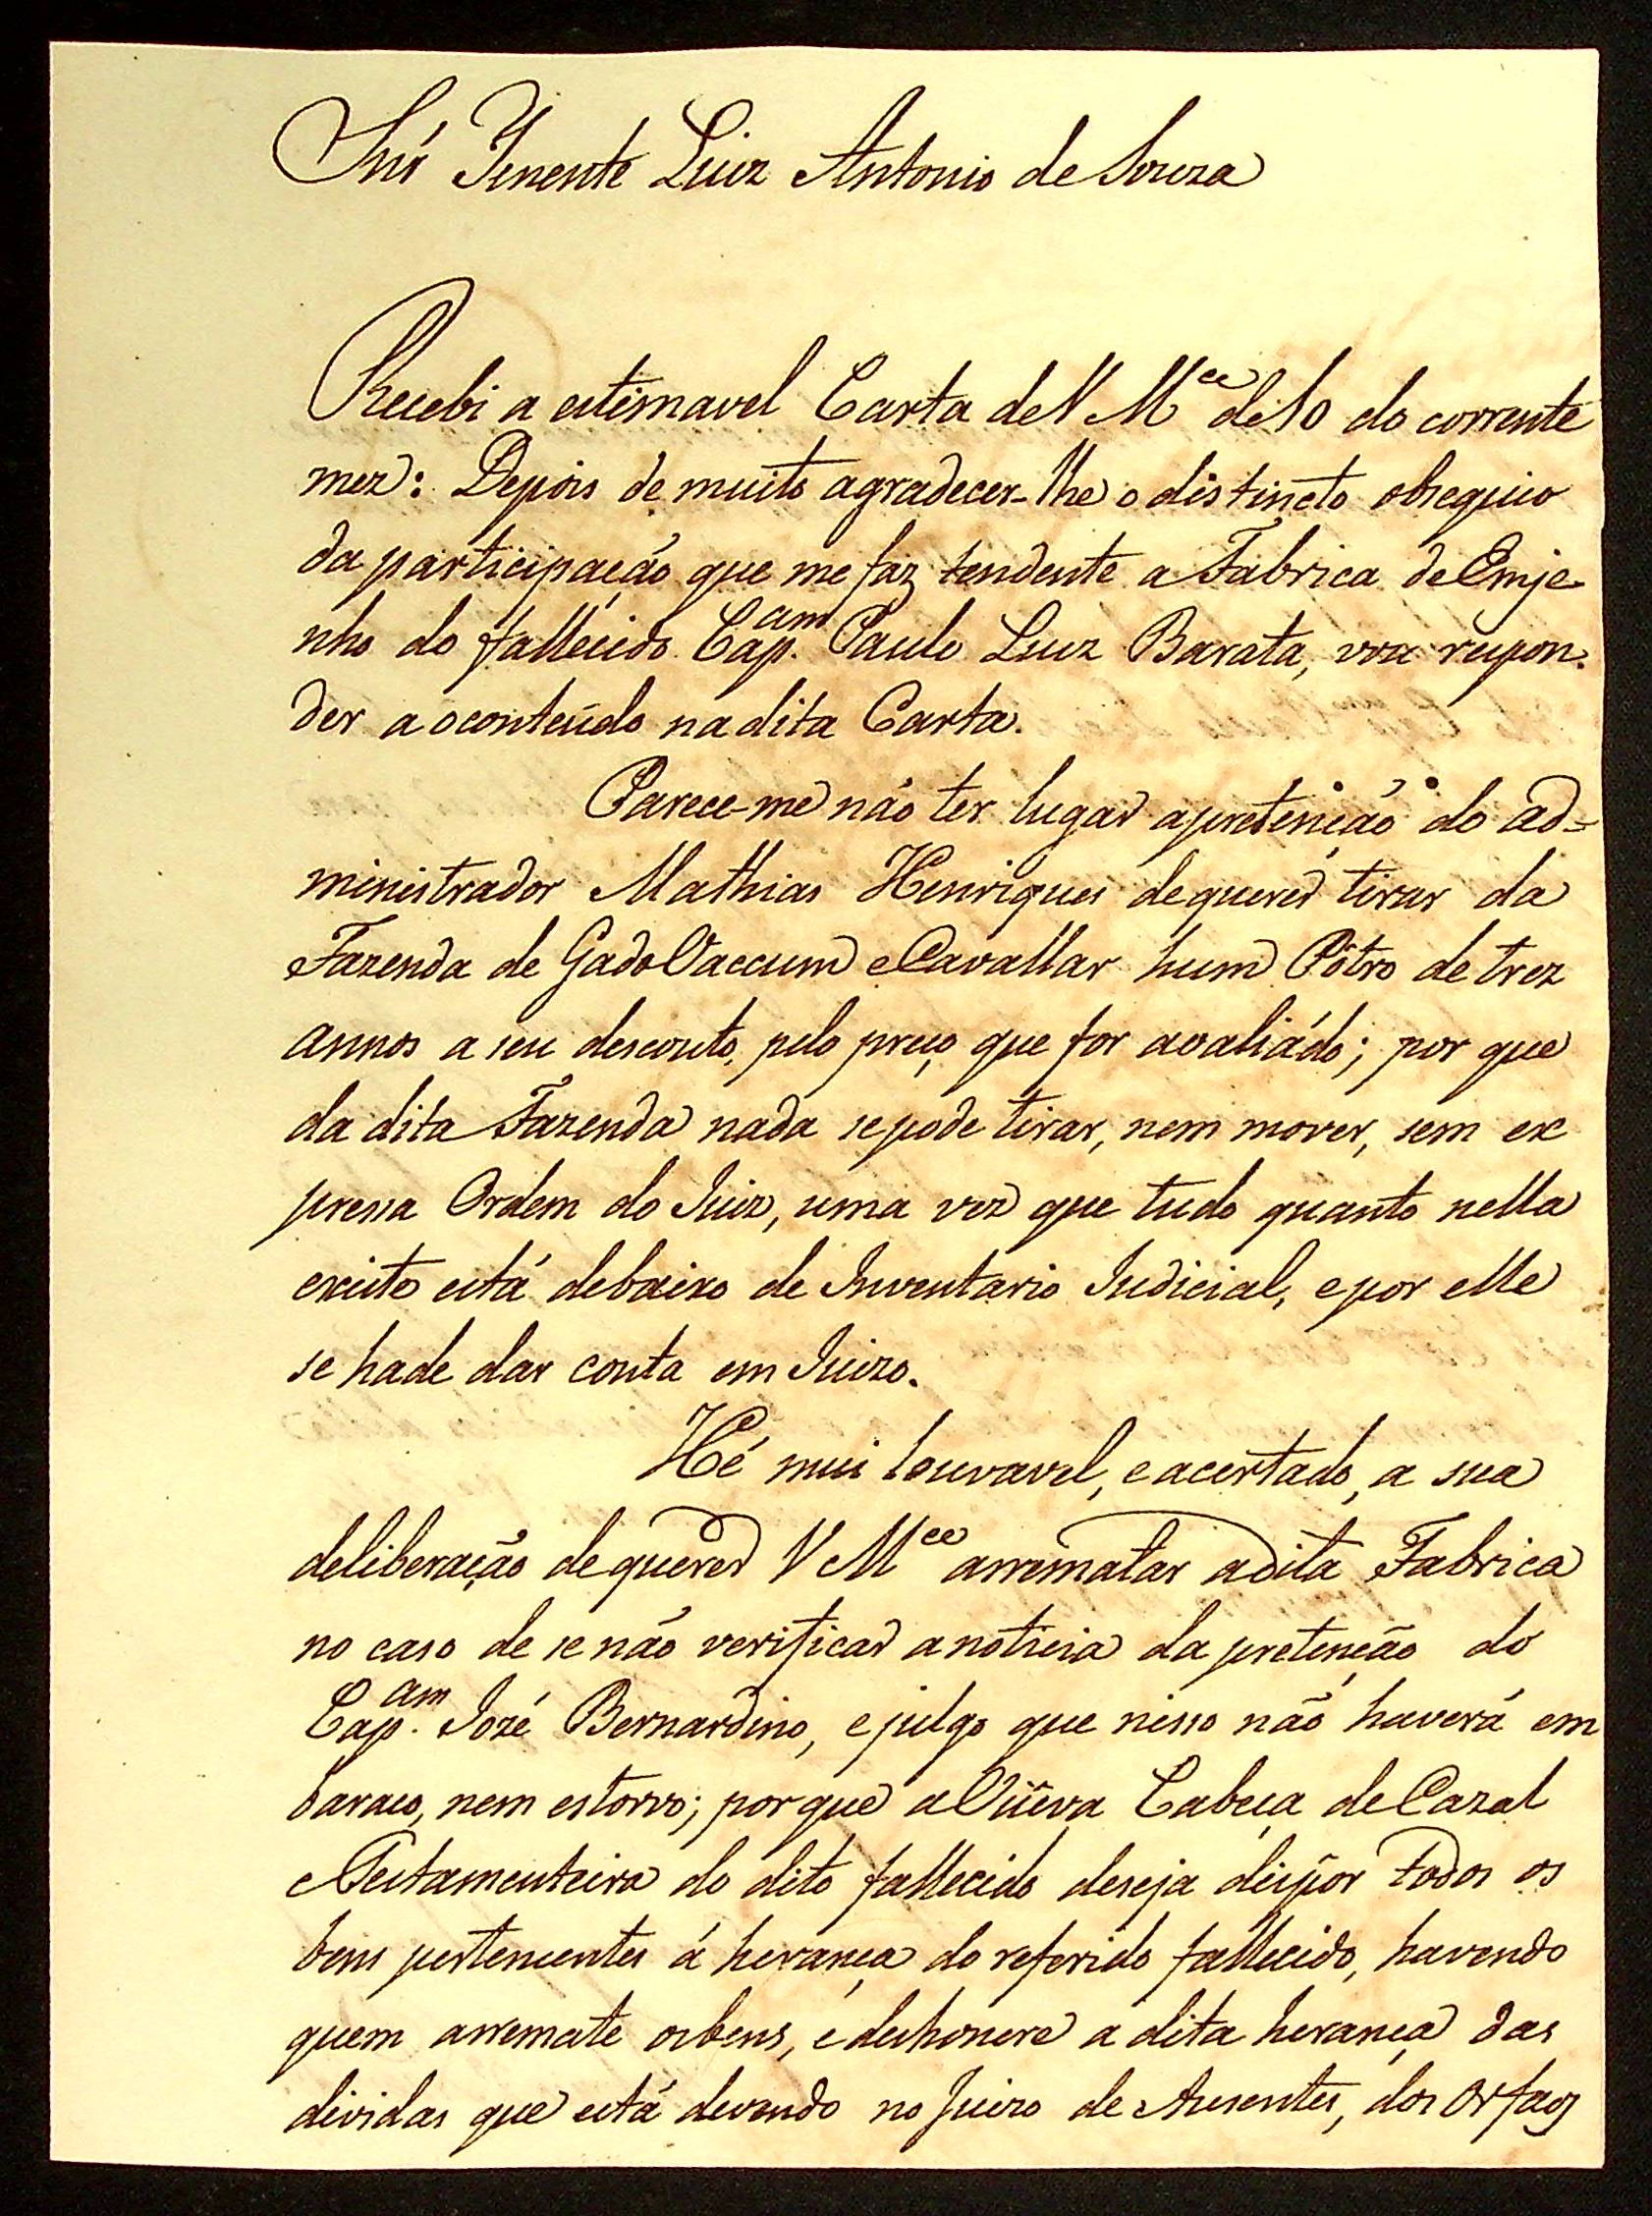 Snr̃ Tenente Luiz Antonio de Souza
Recebi a estimavel Carta de V Mce de 10 do corrente
mez: Depois de muito agradecer-lhe o distincto obsequio
da participação que me faz tendente a Fabrica de Emje-
nho do fallecido Cap.am Paulo Luiz Barata, vou respon-
der ao conteúdo na dita Carta.
Parece-me não ter lugar a pretenção do ad=
ministrador Mathias Henriques de querer tirar da
Fazenda de Gado Vaccum e Cavallar hum Pôtro de trez
annos a seu desconto, pelo preço que for avaliádo; por que
da dita Fazenda nada se pode tirar, nem mover, sem ex
pressa Ordem do Juiz, uma vez que tudo quanto nella
existe está debaixo de Inventario Judicial, e por elle
se hade dar conta em Juizo.
Hé mui louvavel, e acertado, a sua
deliberação de querer V Mce arrematar a dita Fabrica
no caso de se não verificar a noticia da pretenção do
Cap.am Jozé Bernardino, e julgo que nisso não haverá em
baraço, nem estorvo; porque a Viúva Cabeça de Cazal
e Testamenteira do dito fallecido deseja dispôr todos os
bens pertencentes á herança do referido fallecido, havendo
quem arremate os bens, e deshonere a dita herança das
dividas que está devendo no Juizo de Ausentes, dos Orfaos